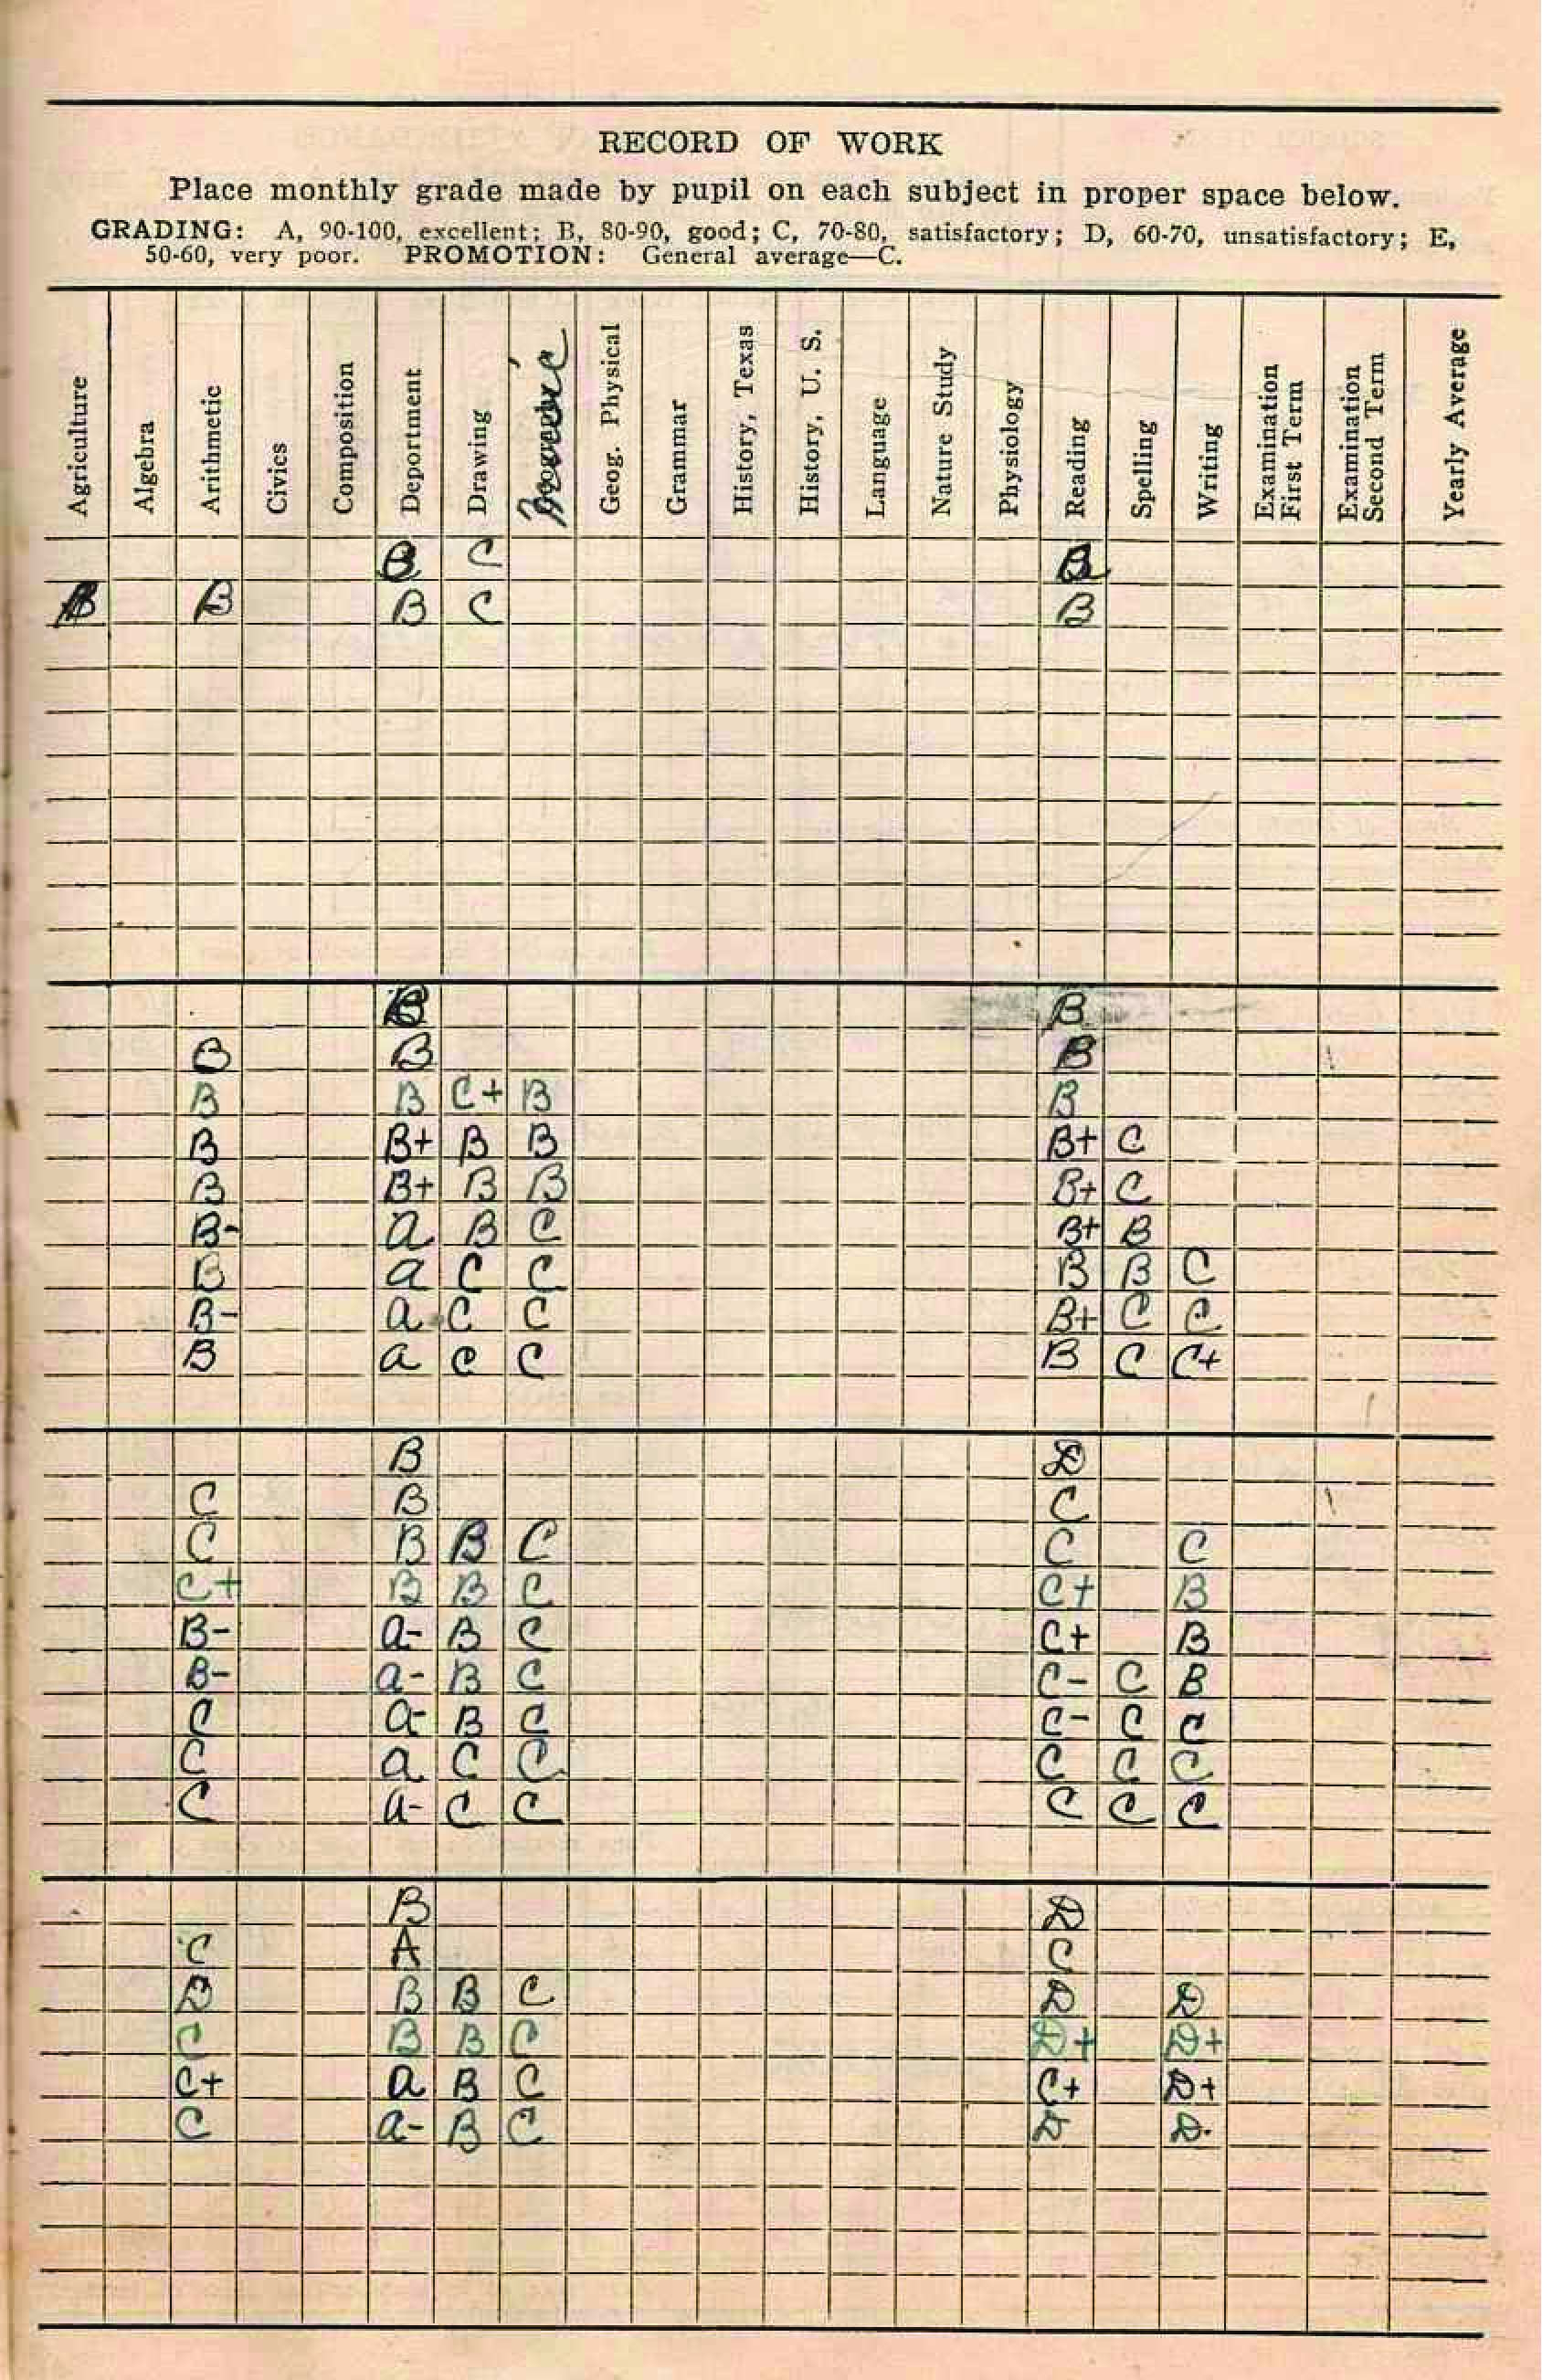 RECORD OF WORK
Place monthly grade made by pupil on each subject in proper space below.
GRADING: A, 90-100, excellent; B, 80-90, good; C, 70-80, satisfactory; D, 60-70, unsatisfactory; E,
50-60, very poor. PROMOTION: General average—C.
Agriculture Algebra Arithmetic Civics Composition Deportment Drawing Music Geog. Physical Grammar History, Texas History, U. S. Language Nature Study Physiology Reading Spelling Writing Examination First Term Examination Second Term Yearly Average
B C B
B B B C B
B B
B B B
B B C+ B B
B B+ B B B+ C
B B+ B B B+ C
B- a B C B+ B
B a C C B B C
B- a C C B+ C C
B a C C B C C+
B D
C B C
C B B C C C
C+ B B C C+ B
B- a- B C C+ B
B- a- B C C- C B
C a- B C C- C C
C a C C C C C
C a- C C C C C
B D
C A C
D B B C D D
C B B C D+ D+
C+ a B C C+ D+
C a- B C D D.